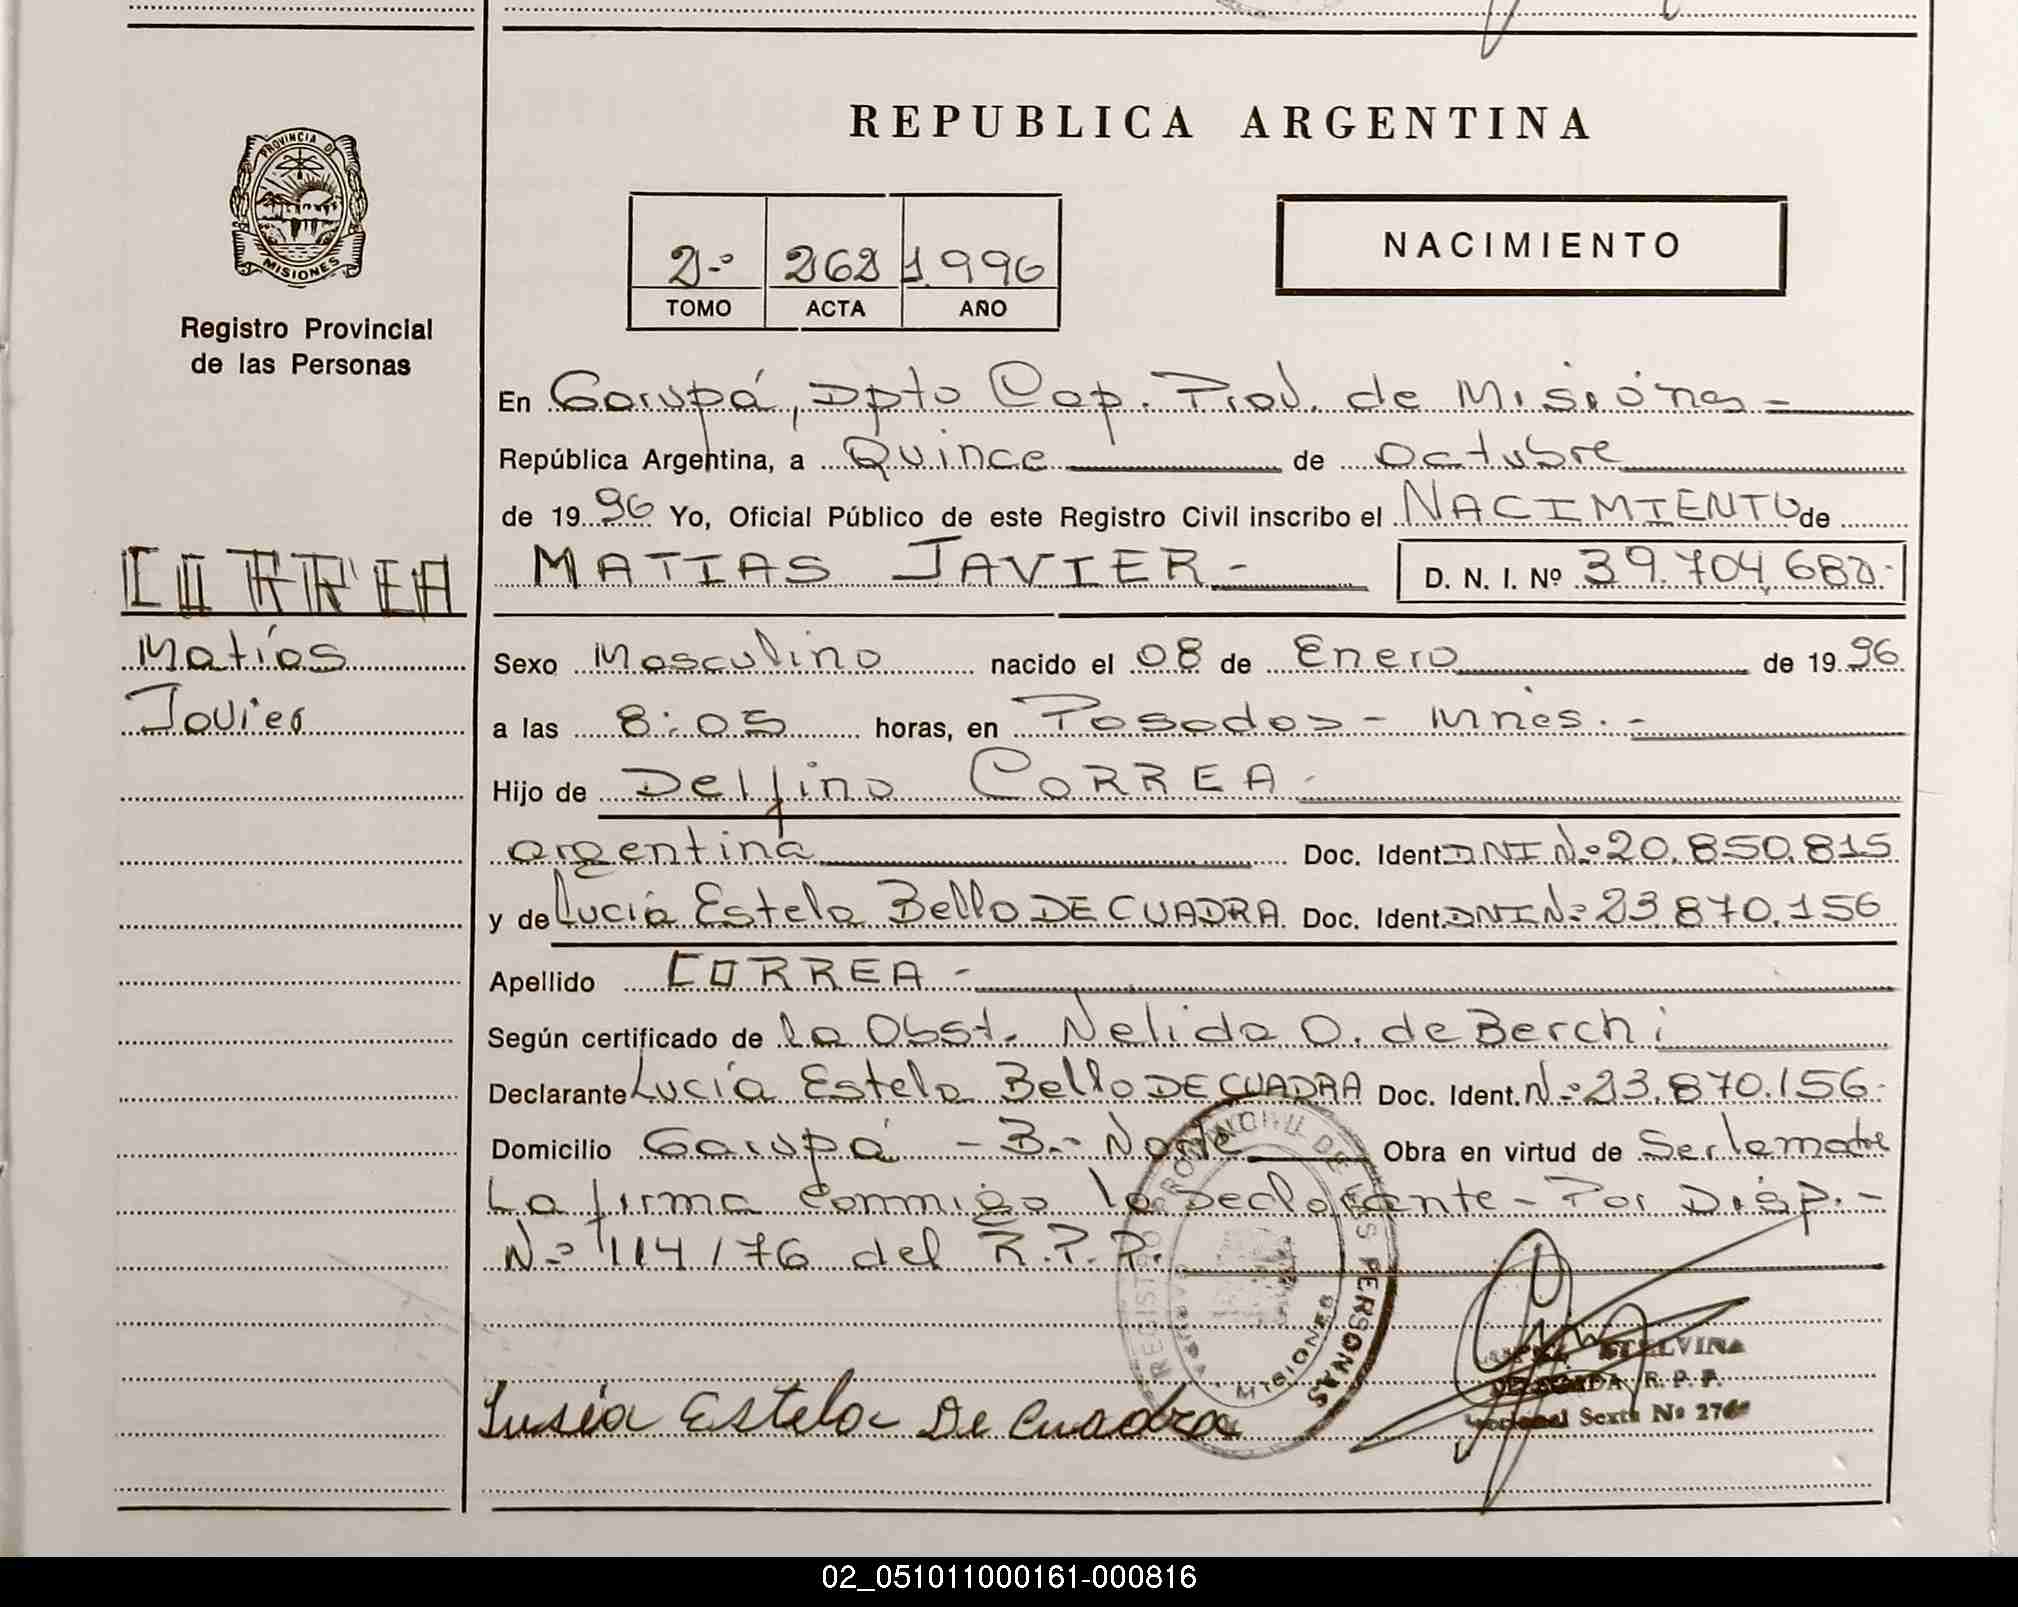 REPUBLICA ARGENTINA
PROVINCIA DE
MISIONES
Registro Provincial
de las Personas
2º
262
1.996
TOMO
ACTA
AÑO
NACIMIENTO
En Garupá, Dpto Cap. Prov. de Misiones -
República Argentina, a Quince de octubre
de 1996 Yo, Oficial Público de este Registro Civil inscribo el NACIMIENTO de
MATIAS JAVIER - D. N. I. Nº 39.704.682-
CORREA
Matías
Javier
Sexo Masculino nacido el 08 de Enero de 1996
a las 8:05 horas, en Posadas - Mnes. -
Hijo de Delfino CORREA -
argentina Doc. Ident. DNI Nº 20.850.815
y de Lucía Estela Bello DE CUADRA Doc. Ident. DNI Nº 23.870.156
Apellido CORREA -
Según certificado de la Obst. Nelida O. de Berchi
Declarante Lucía Estela Bello DE CUADRA Doc. Ident. Nº 23.870.156-
Domicilio Garupá - B.- Norte Obra en virtud de Ser la madre
La firma conmigo la Declarante - Por Disp. -
Nº 114/76 del R.P.P.
REGISTRO PROVINCIAL DE LAS PERSONAS
MISIONES
ETELVINA
DELEGADA R. P. P.
Sexta Nº 276
Lusia Estela De Cuadra
02_051011000161-000816